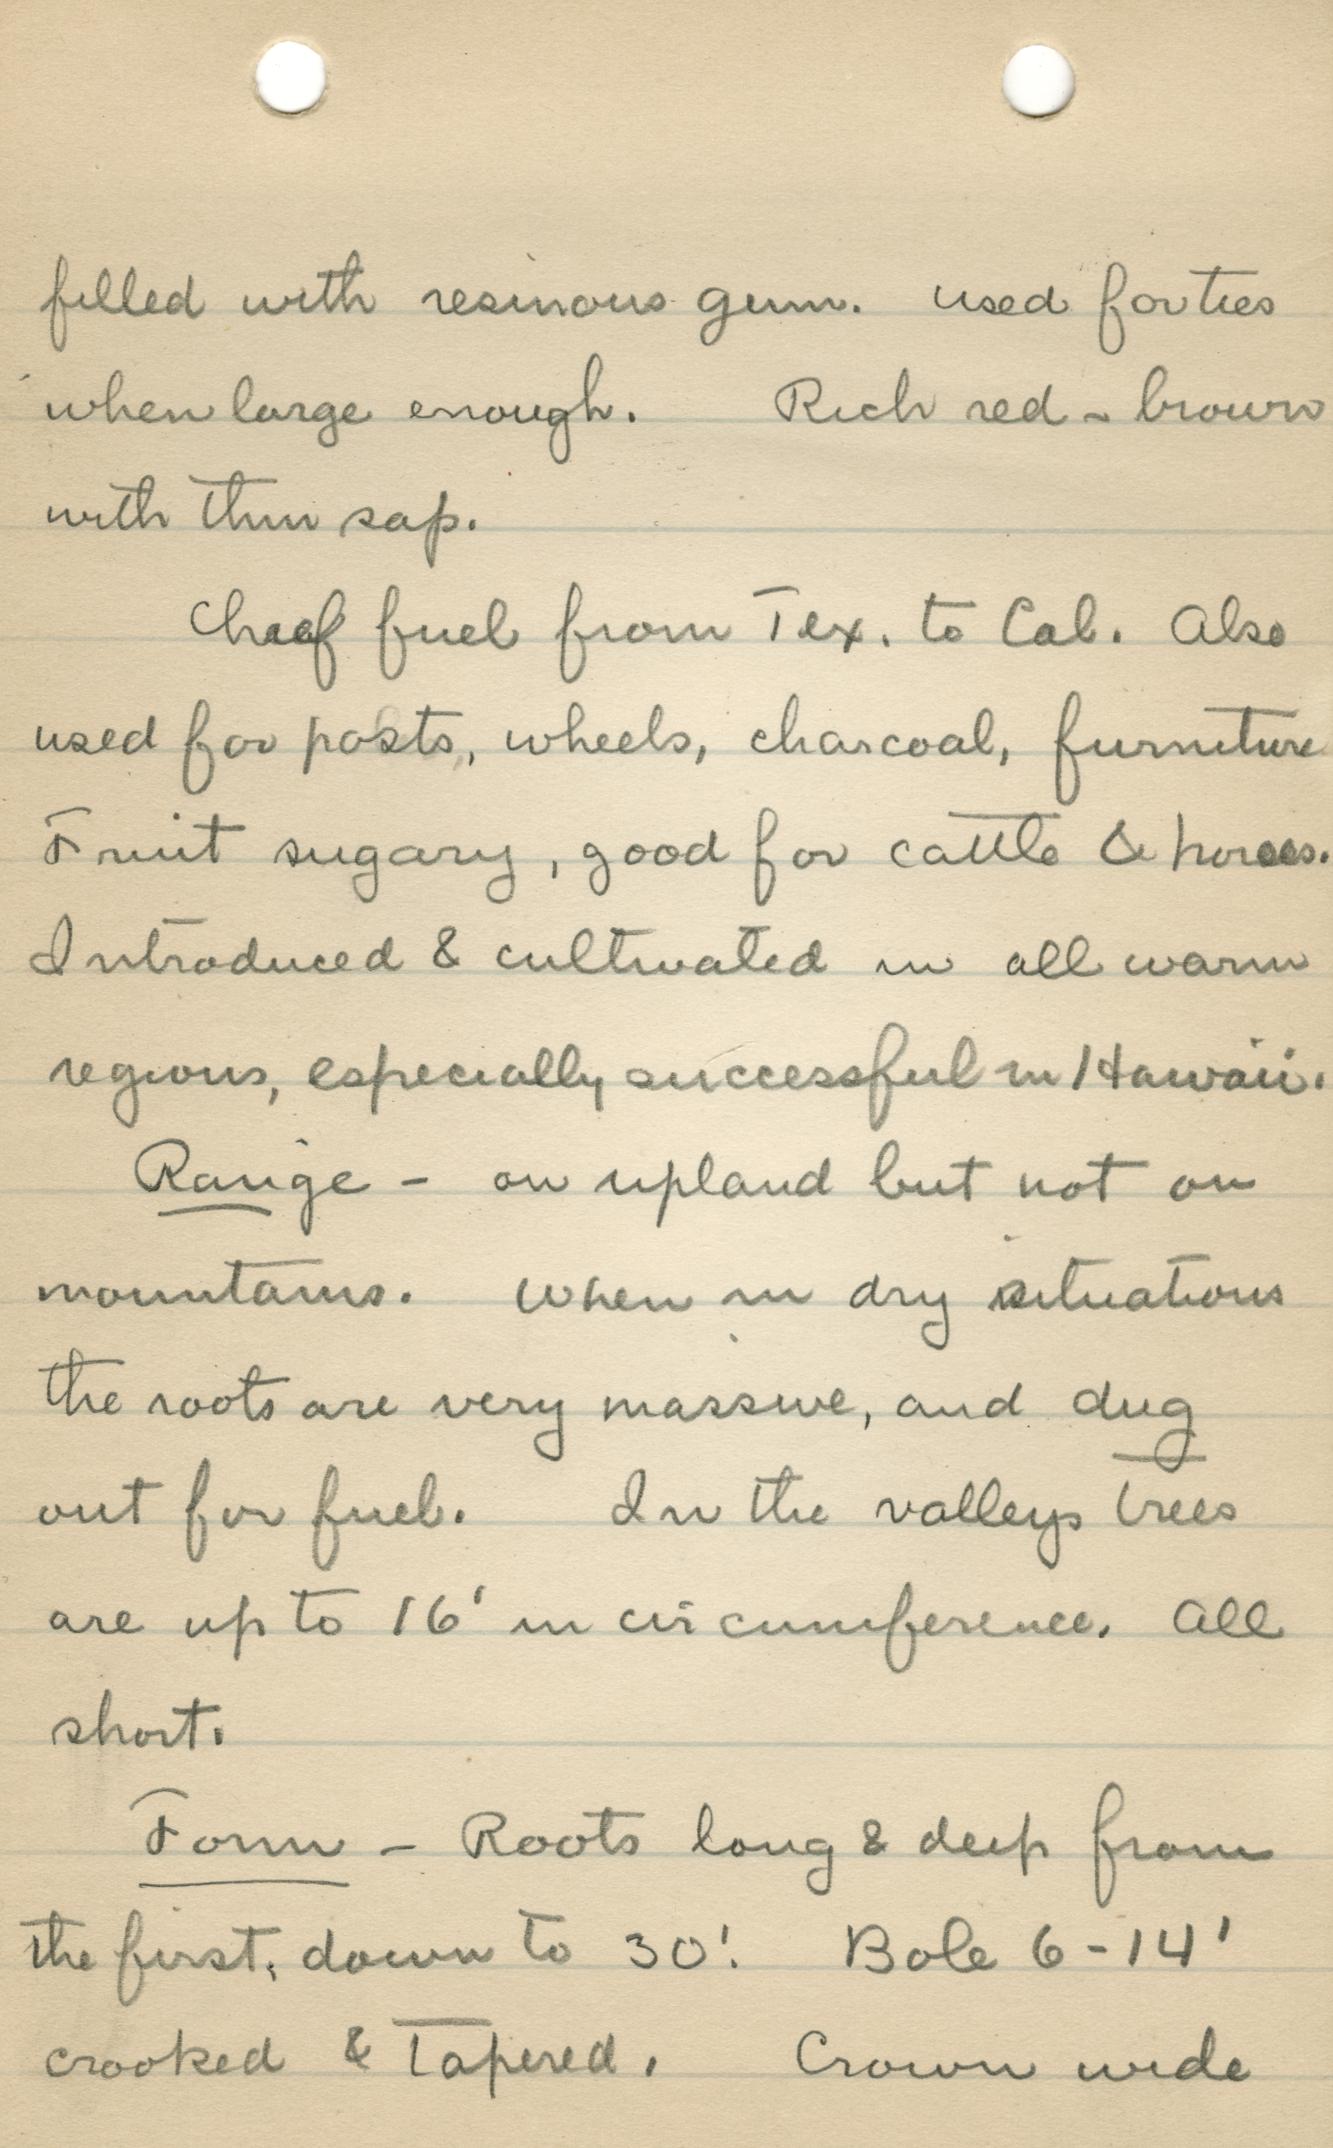 filled with resinous gum. used for ties
when large enough. Rich red-brown
with thin sap.
Chief fuel from Tex. to Cal. Also
used for posts, wheels, charcoal, furniture
Fruit sugary, good for cattle & horses.
Introduced & cultivated in all warm
regions, especially successful in Hawaii.
Range - on upland but not on
mountains. When in dry situations
the roots are very massive, and dug
out for fuel. In the valleys trees
are up to 16' in circumference. All
short.
Form - Roots long & deep from
the first, down to 30'. Bole 6-14'
crooked & Tapered. Crown wide